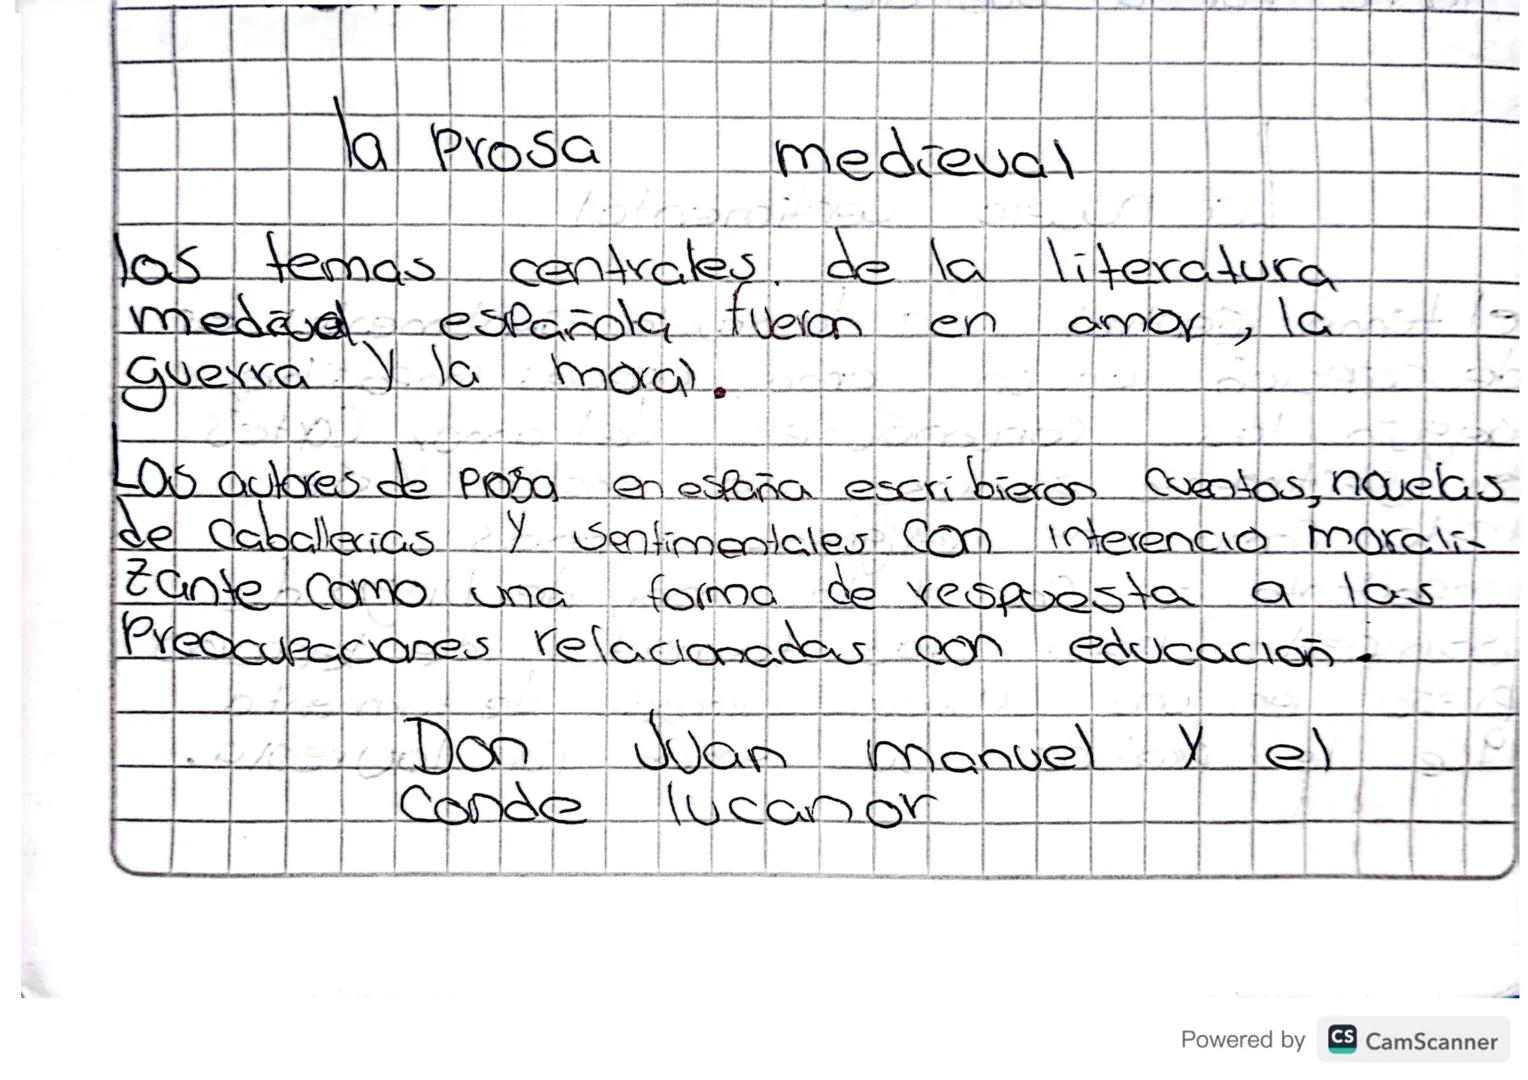 la Prosa medieval
los temas centrales de la literatura
medieval española fueron en amor, la
guerra y la moral.
Los autores de prosa en españa escribieron cuentos, novelas
de caballerias y sentimentales con interencio morali-
zante como una forma de respuesta a las
Preocupaciones relacionadas con educación.
Don Juan manuel y el
Conde lucanor
Powered by CS CamScanner